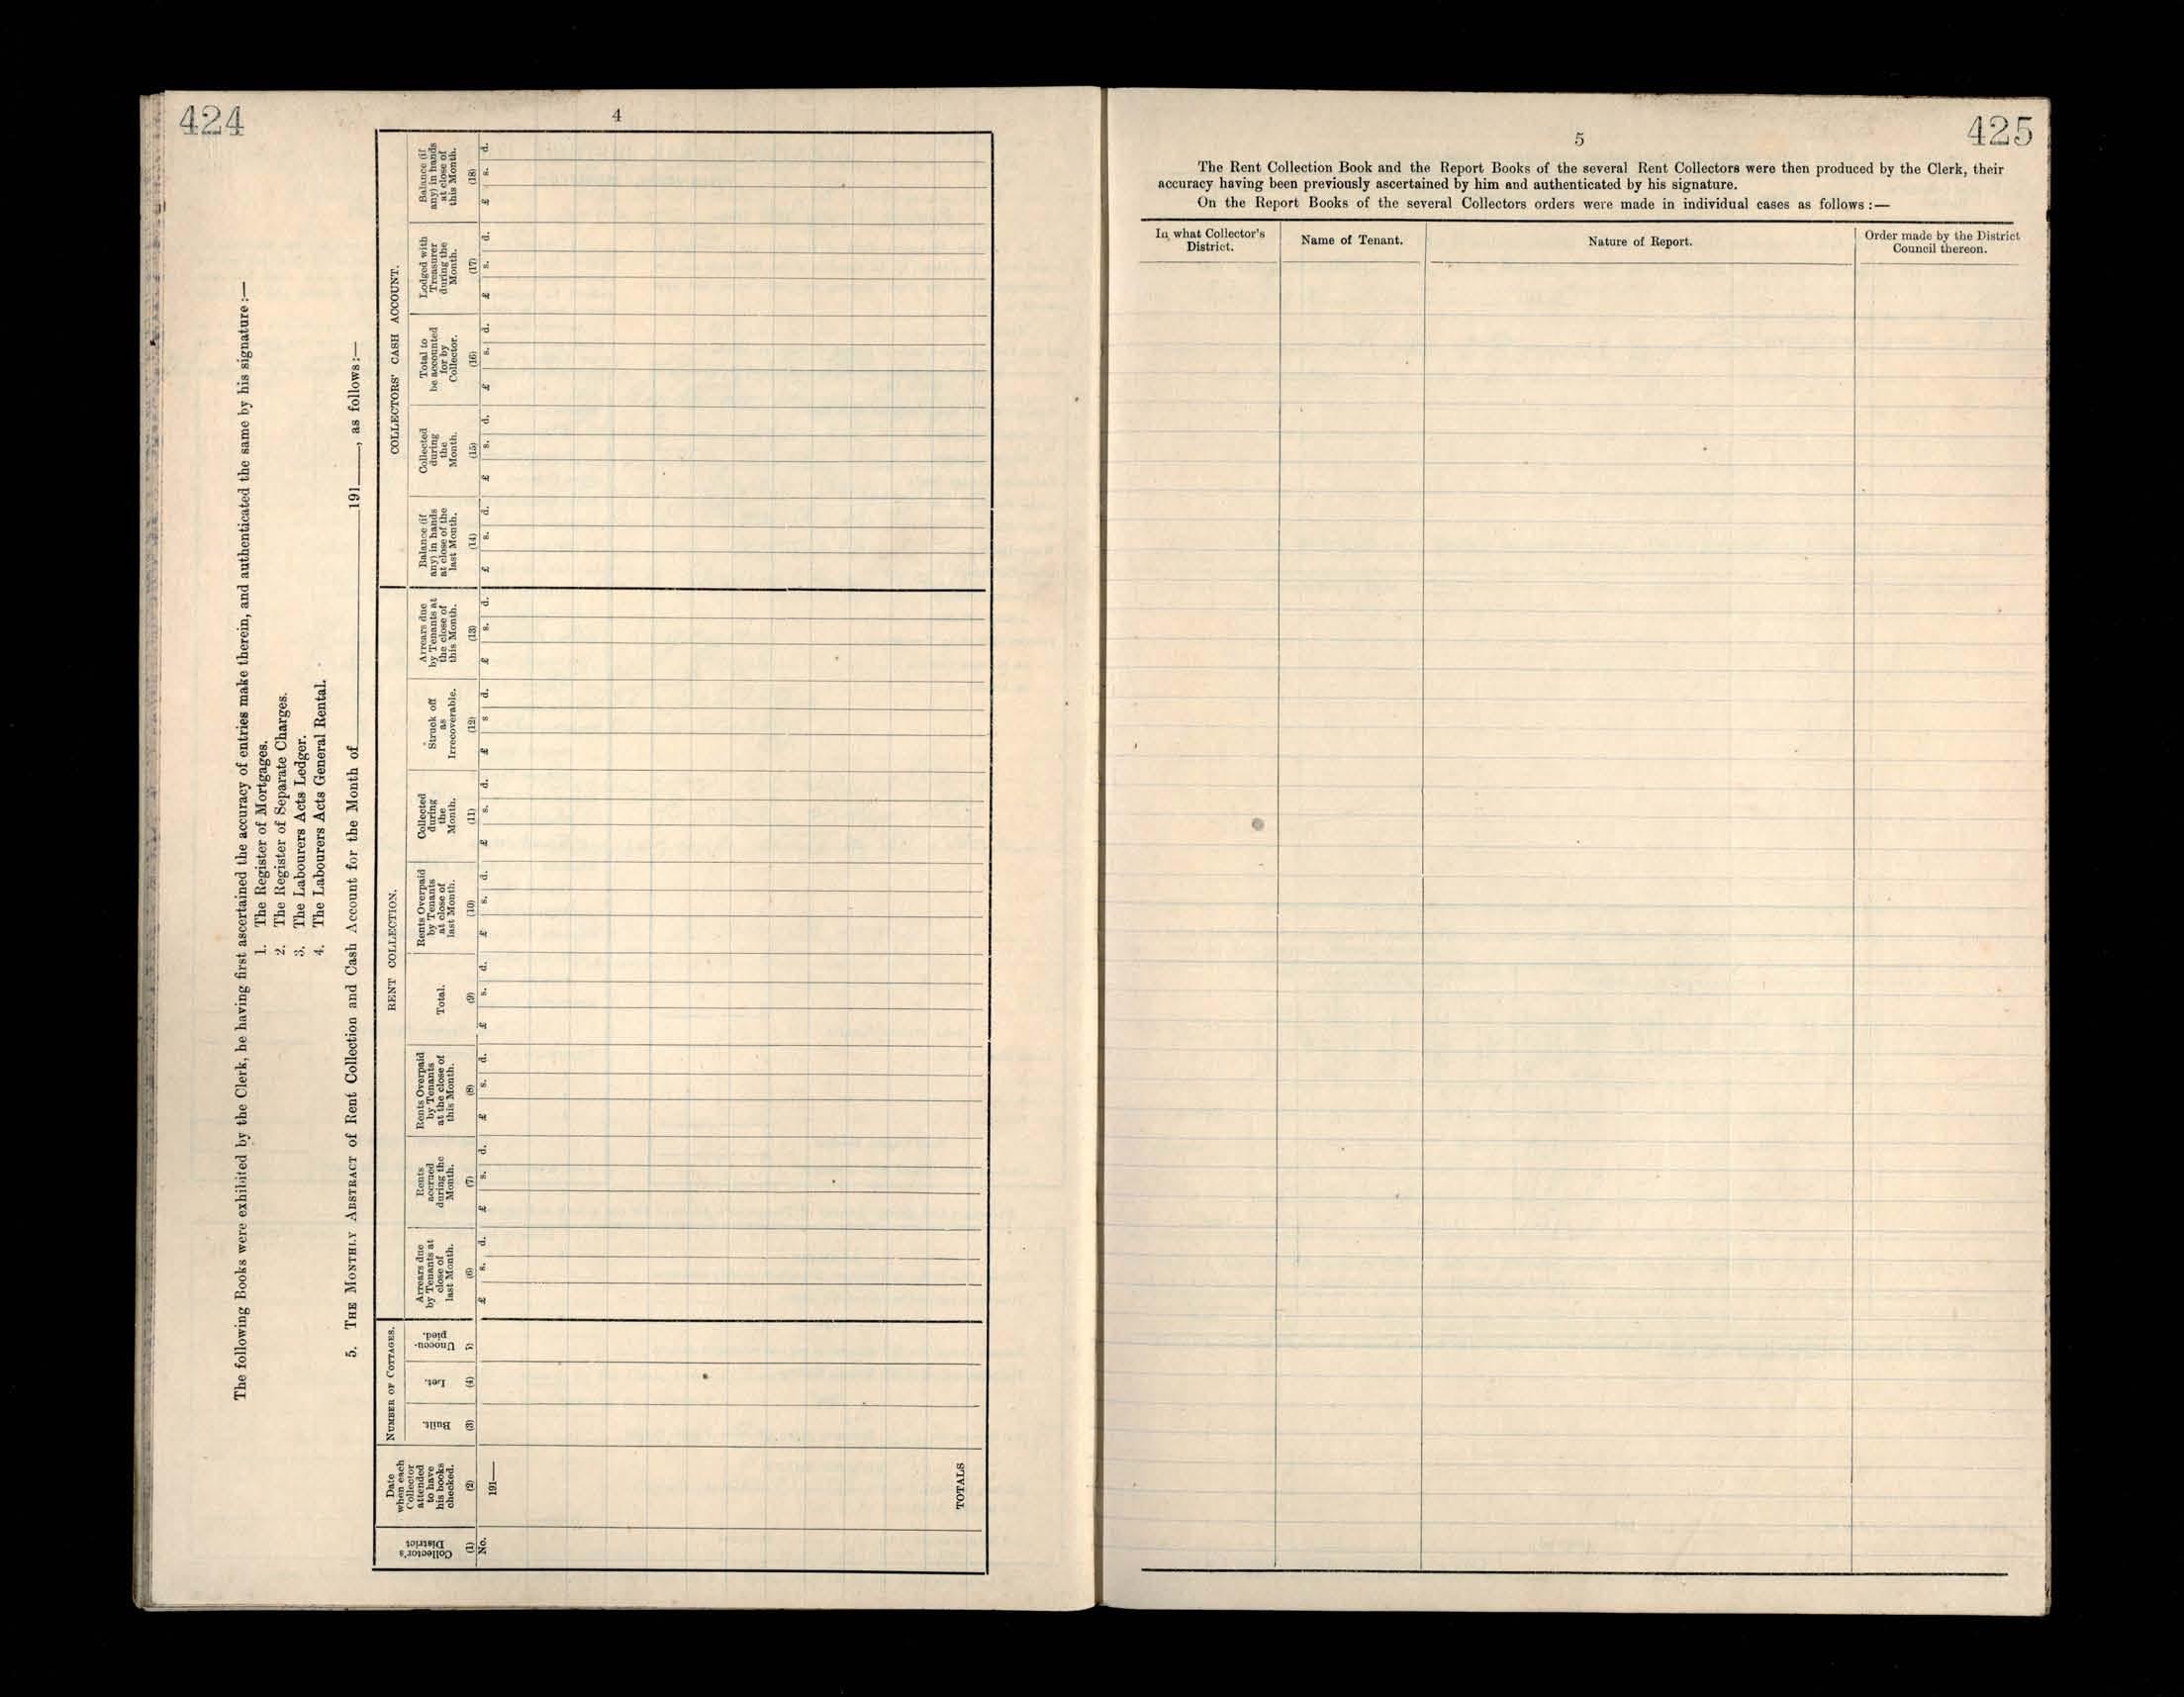 424
4
The following Books were exhibited by the Clerk, he having first ascertained the accuracy of entries make therein, and authenticated the same by his signature :—
1. The Register of Mortgages.
2. The Register of Separate Charges.
3. The Labourers Acts Ledger.
4. The Labourers Acts General Rental.
5. THE MONTHLY ABSTRACT of Rent Collection and Cash Account for the Month of 191 , as follows:—
NUMBER OF COTTAGES.
RENT COLLECTION.
COLLECTORS' CASH ACCOUNT.
Collector's
District
(1)
Date
when each
Collector
attended
to have
his books
checked.
(2)
Built.
(3)
Let.
(4)
Unoccu-
pied.
(5)
Arrears due
by Tenants at
close of
last Month.
(6)
Rents
accrued
during the
Month.
(7)
Rents Overpaid
by Tenants
at the close of
this Month.
(8)
Total.
(9)
Rents Overpaid
by Tenants
at close of
last Month.
(10)
Collected
during
the
Month.
(11)
Struck off
as
Irrecoverable.
(12)
Arrears due
by Tenants at
the close of
this Month.
(13)
Balance (if
any) in hands
at close of the
last Month.
(14)
Collected
during
the
Month.
(15)
Total to
be accounted
for by
Collector.
(16)
Lodged with
Treasurer
during the
Month.
(17)
Balance (if
any) in hands
at close of
this Month.
(18)
No. 191— £ s. d. £ s. d. £ s. d. £ s. d. £ s. d. £ s. d. £ s d. £ s. d. £ s. d. £ s. d. £ s. d. £ s. d. £ s. d.
TOTALS
425
5
The Rent Collection Book and the Report Books of the several Rent Collectors were then produced by the Clerk, their
accuracy having been previously ascertained by him and authenticated by his signature.
On the Report Books of the several Collectors orders were made in individual cases as follows :—
In what Collector's
District.
Name of Tenant.
Nature of Report.
Order made by the District
Council thereon.